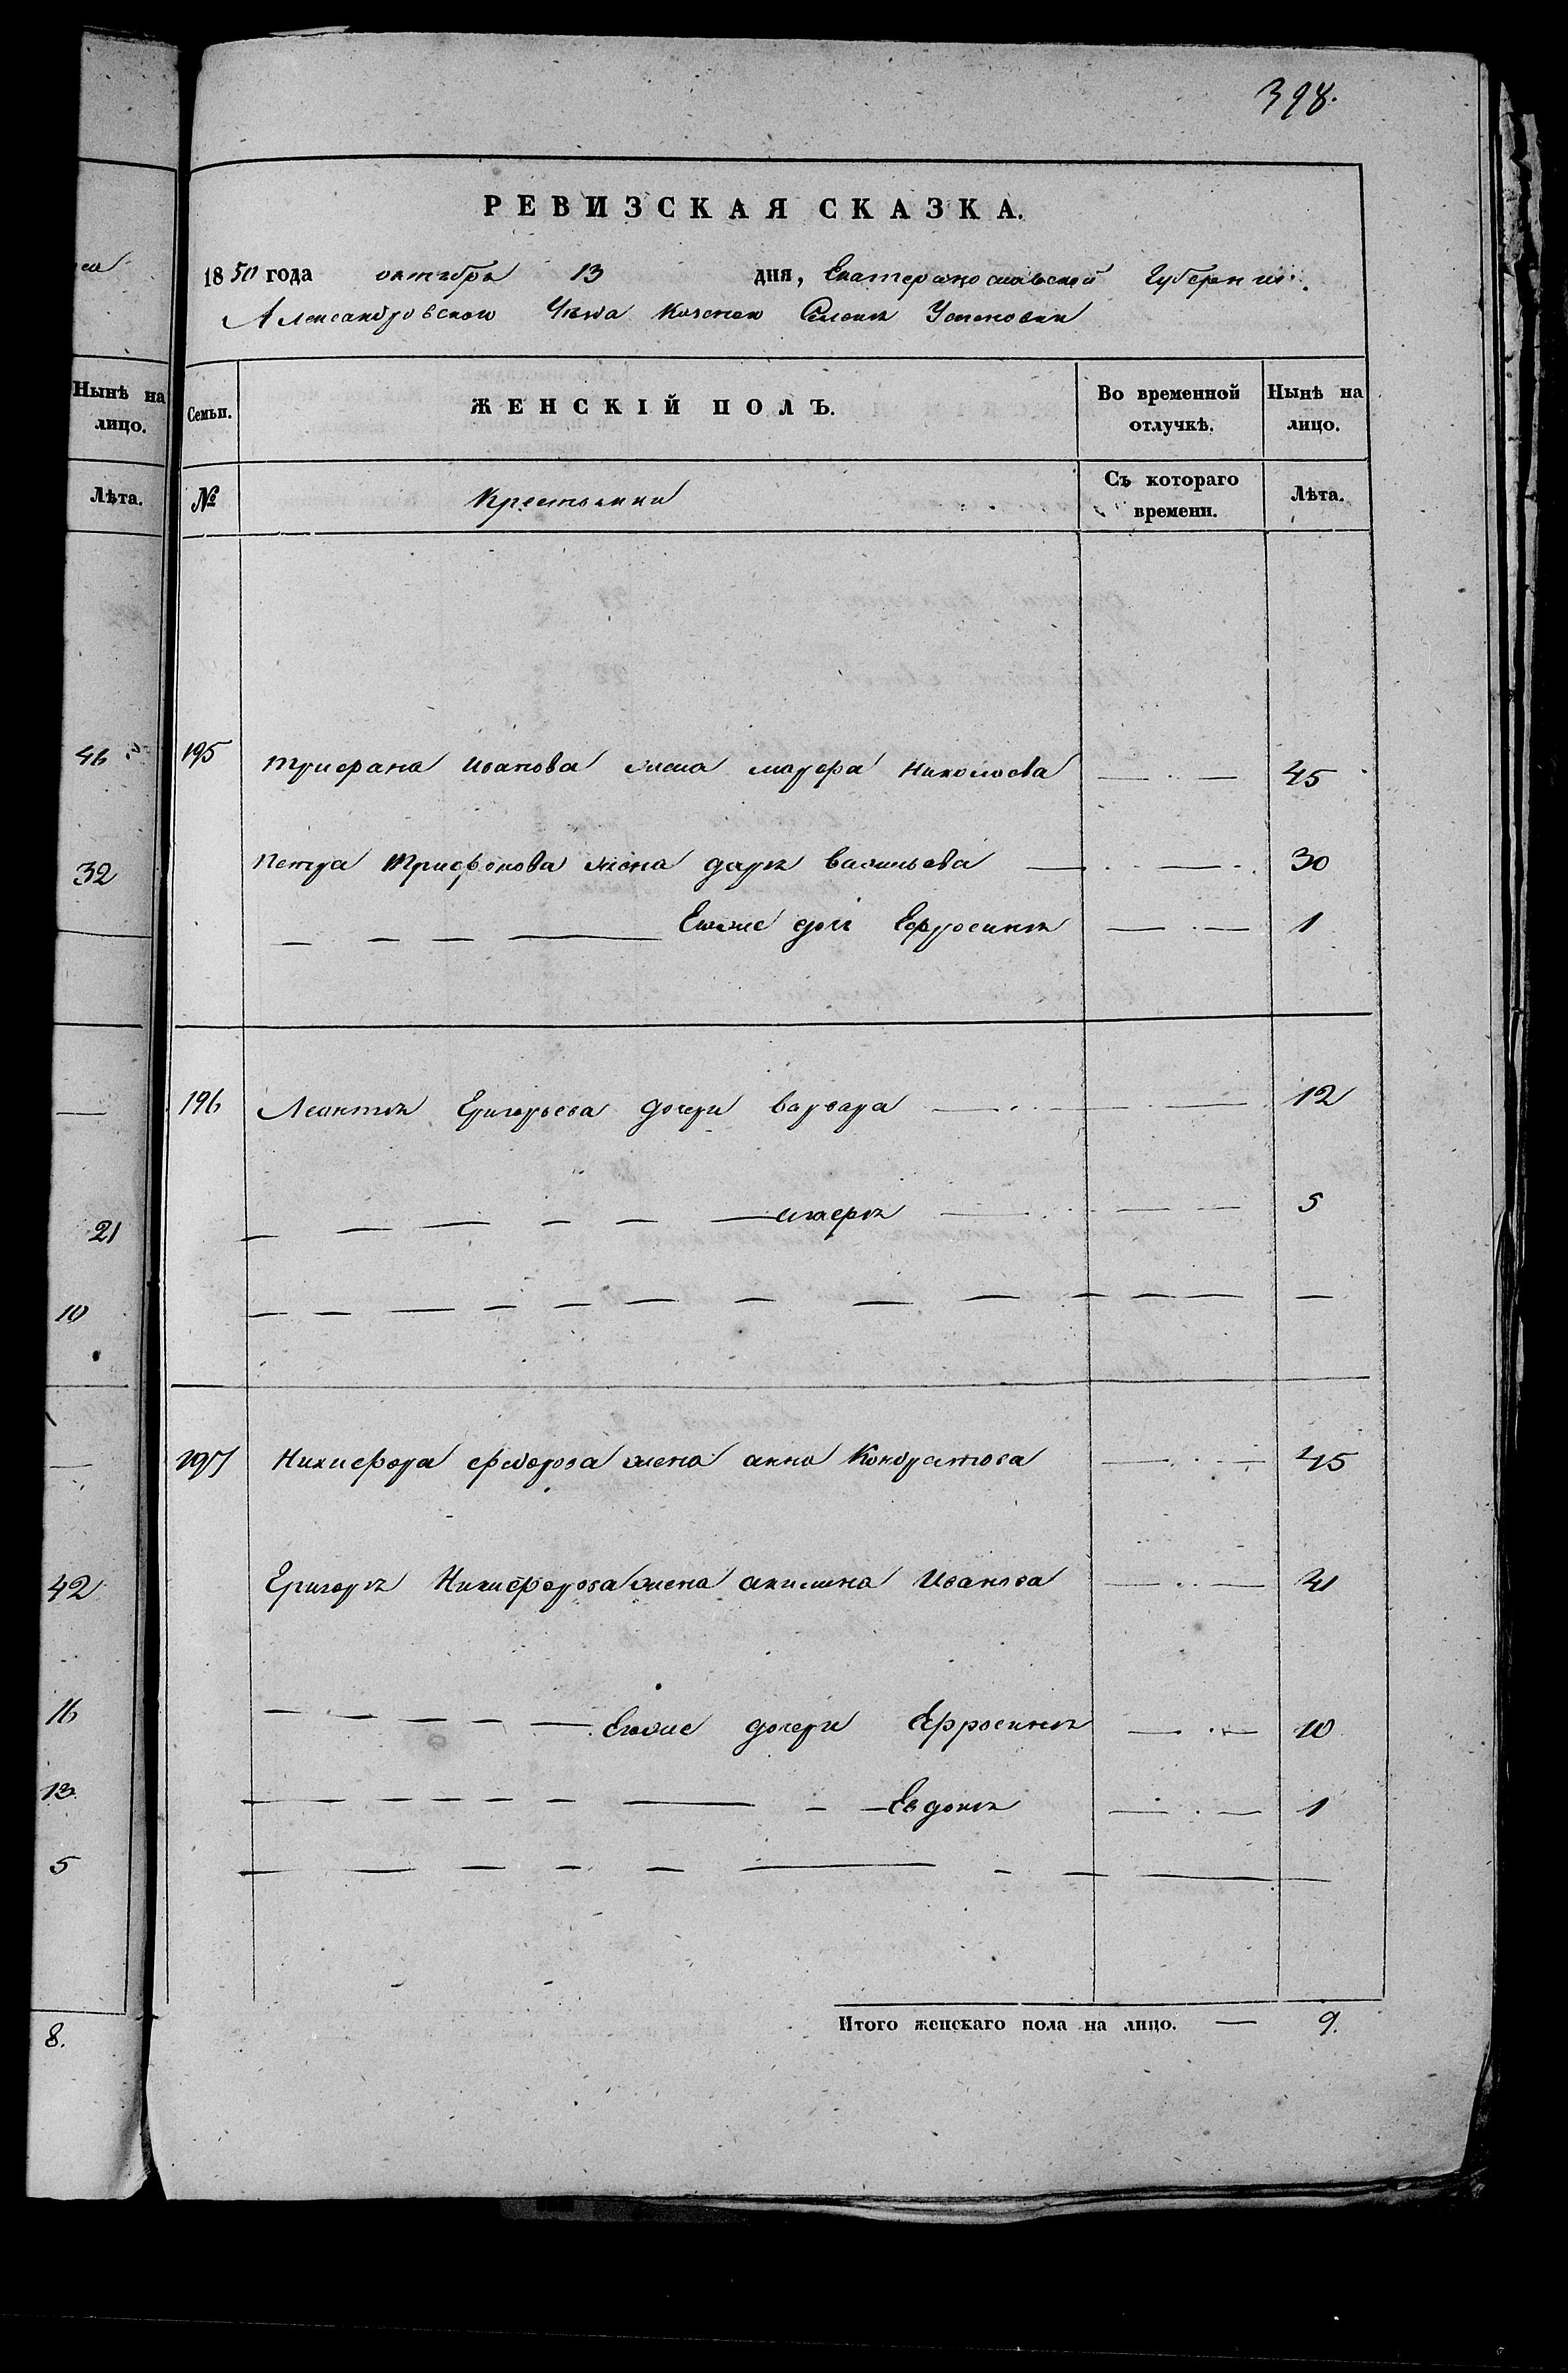 398.
РЕВИЗСКАЯ СКАЗКА.
1850 года октября 13 дня, Екатеринославской Губернии
Александровскаго Уѣзда Казенной Селенія Успеновки
Нынѣ на лицо.
Семьи.
ЖЕНСКІЙ ПОЛЪ.
Во временной отлучкѣ.
Нынѣ на лицо.
Лѣта.
№
Крестьянки
Съ котораго времени.
Лѣта.
46
195 Трифана Иванова жена Марфа Николаева — . — 45
32
Петра Трифонова жена Дарья Васильева — . — . 30
— — — — Егоже дочь Ефросинья — . — 1
196 Леонтія Григорьева дочери Варвара — . . — — 12
21
— — — — — — — . — — 5
10
— — — — — — — — — — — — —
197 Никифора Федорова жена Анна Кондратова — . . — 45
42
Григорія Никифорова жена Акилина Иванова — . . — 41
16
— — — — — Егоже дочери Ефросинья — . — 10
13
— — — — — — — — Евдокія — . — 1
5
— — — — — — — — — —
8.
Итого женскаго пола на лицо. — 9.